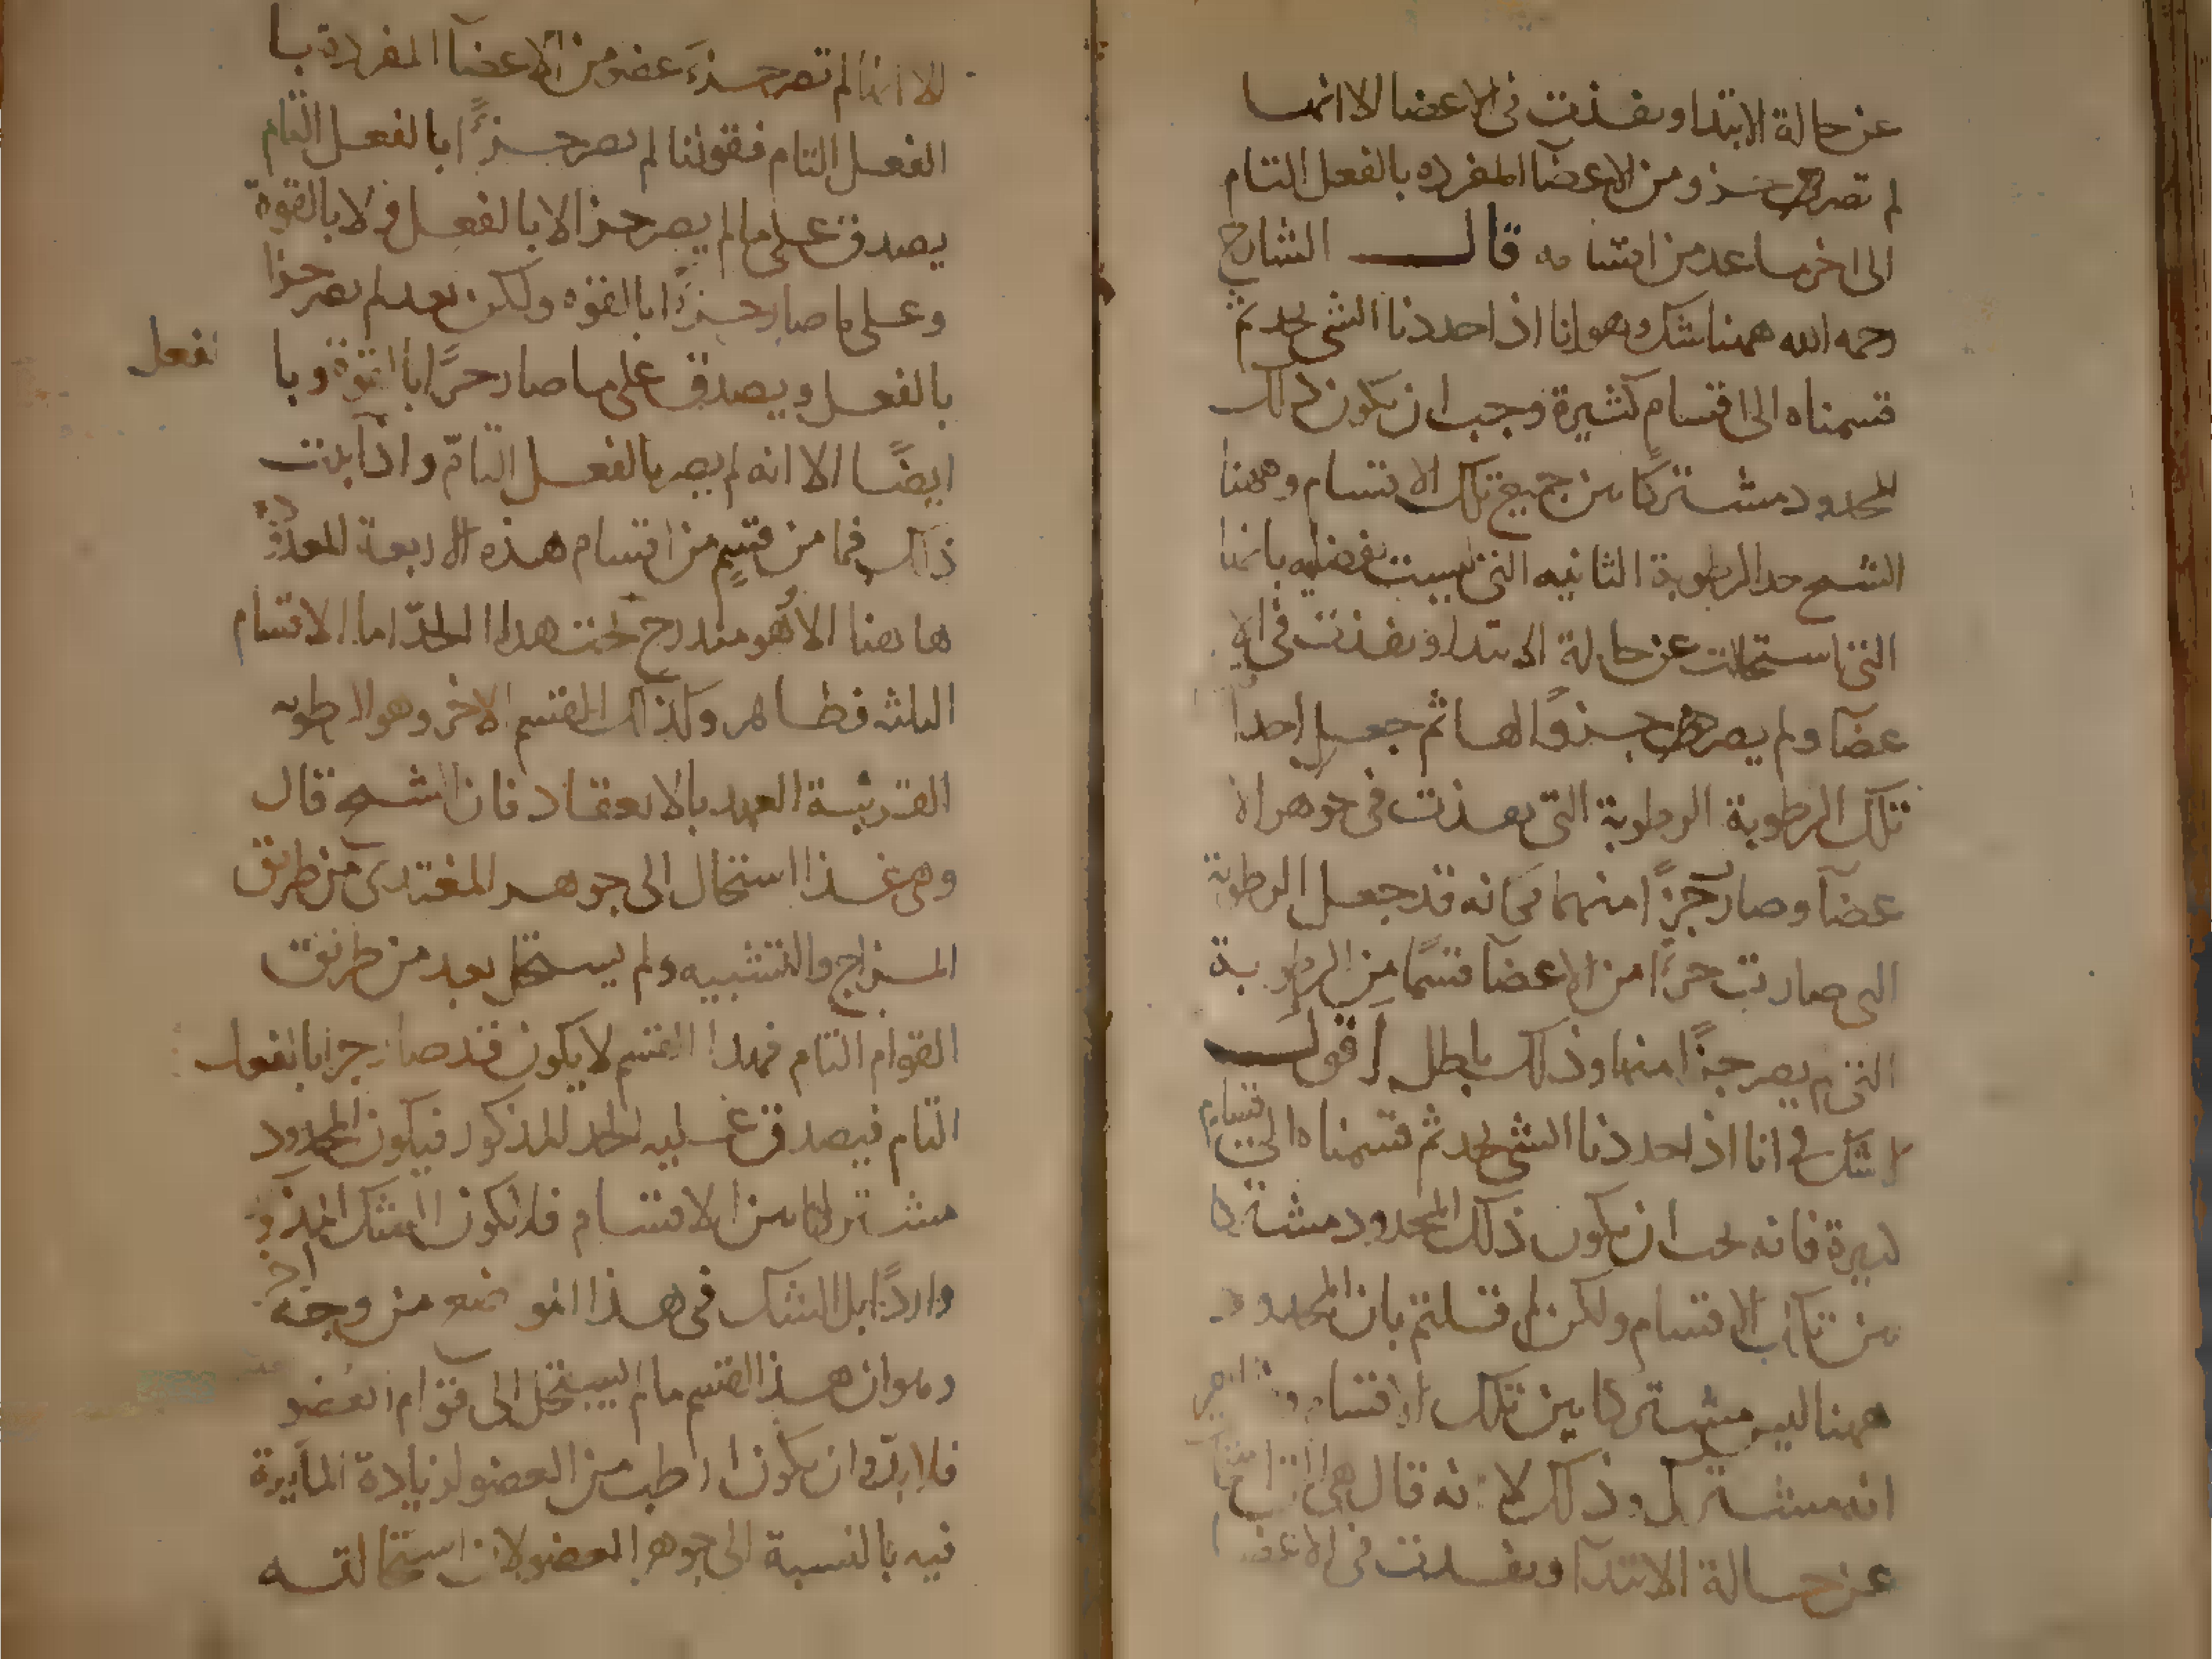 عن حالة الابتدا ونفذت فى الاعضا الا انها
لم تصر جزو من الاعضآ المفرده بالفعل التام
الى اخر ما عد من اقسامه قال الشارح
رحمه الله ههنا شك وهو انا اذا حددنا الشى بحد ثم
قسمناه الى اقسام كثيرة وجب ان يكون ذلك
المحدود مشتركًا بين جميع تلك الاقسام وههنا
الشيخ حد الرطوبة الثانيه التى ليست بفضليه بانها
التى استحالت عن حالة الابتدا ونفذت فى الا
عضآ ولم يصر جزوًا لها ثم جعل احد
تلك الرطوبة الرطوبة التى نفذت فى جوهر الا
عضآ وصار جزًا منها فكانه قد جعل الرطوبة
التى صارت جزءًا من الاعضآ قسمًا من الرطوبة
التى لم يصر جزًا منها وذلك باطل اقول
لا شك فى انا اذا حددنا الشى بحد ثم قسمناه الى اقسام
كثيرة فانه يجب ان يكون ذلك المحدود مشتركا
بين تلك الاقسام ولكن لم قلتم بان المحدود
ههنا ليس مشتركا بين تلك الاقسام
انه مشترك وذلك لانه قال هى التى
عن حالة الابتدآ ونفذت فى الاعضا
الا انها لم تصر جزء عضو من الاعضآ المفردة با
الفعل التام فقولنا لم يصر جزءًا بالفعل التام
يصدق على ما لم يصر جزا لا بالفعل ولا بالقوة
وعلى ما صار جزءًا بالقوه ولكن بعد لم يصر جزا
بالفعل ويصدق على ما صار جزًا بالقوة وبا
لفعل
ايضًا الا انه لم يصر بالفعل التامّ واذا ثبت
ذلك فما من قسمٍ من اقسام هذه الاربعة المعدودة
هاهنا الا هُو مندرج تحت هذا الحدّ اما الاقسام
الثلثه فظاهر وكذلك القسم الاخر وهو الرطوبه
القريبة العهد بالانعقاد فان الشيخ قال
وهى غذا استحال الى جوهر المغتذى من طريق
المزاج والتشبيه ولم يستحل بعد من طريق
القوام التام فهذا القسم لا يكون قد صار جزا بالفعل
التام فيصدق عليه الحد المذكور فيكون المحدود
مشتركا بين الاقسام فلا يكون الشك المذكور
واردًا بل الشك فى هذا الموضع من وجه اخر
وهو ان هذا القسم ما لم يستحل الى قوام العضو
فلا بدّ وان يكون ارطب من العضو لزيادة المآئية
فيه بالنسبة الى جوهر العضو لان استحالته